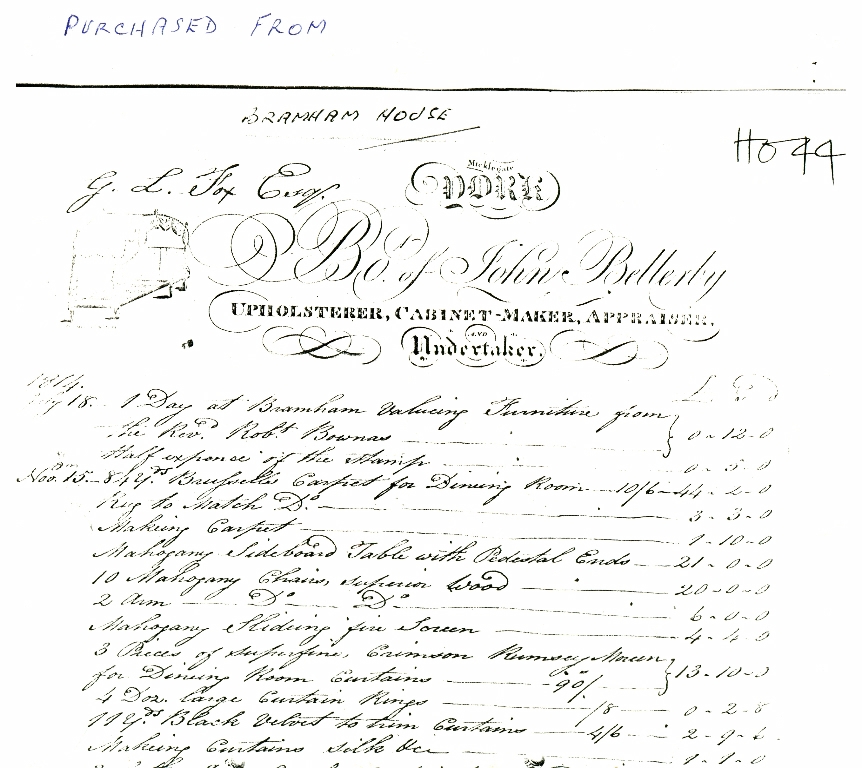 PURCHASED FROM
BRAMHAM HOUSE
HO 44
G. L. Fox Esqr.
Micklegate
YORK
Bo. of John Bellerby
UPHOLSTERER, CABINET-MAKER, APPRAISER,
AND
Undertaker.
£ S D
18. 1 Day at Bramham Valueing Furniture from
the Revd. Robt. Bownas 0-12-0
Half expence of the Stamp 0-5-0
Nov. 15. 84 Yds Brussells Carpet for Dineing Room 10/6 44-2-0
Rug to Match Do. 3-3-0
Makeing Carpet 1-10-0
Mahogany Sideboard Table with Pedestal Ends 21-0-0
10 Mahogany Chairs, superior Wood 20-0-0
2 Arm Do Do 6-0-0
Mahogany Slideing fire Screen 4-4-0
3 Pieces of superfine Crimson Rumsey Moreen
for Dineing Room Curtains 90/ 13-10-0
4 Doz. large Curtain Rings /8 0-2-8
11 Yds Black Velvet to trim Curtains 4/6 2-9-6
Makeing Curtains silk &c 1-1-0